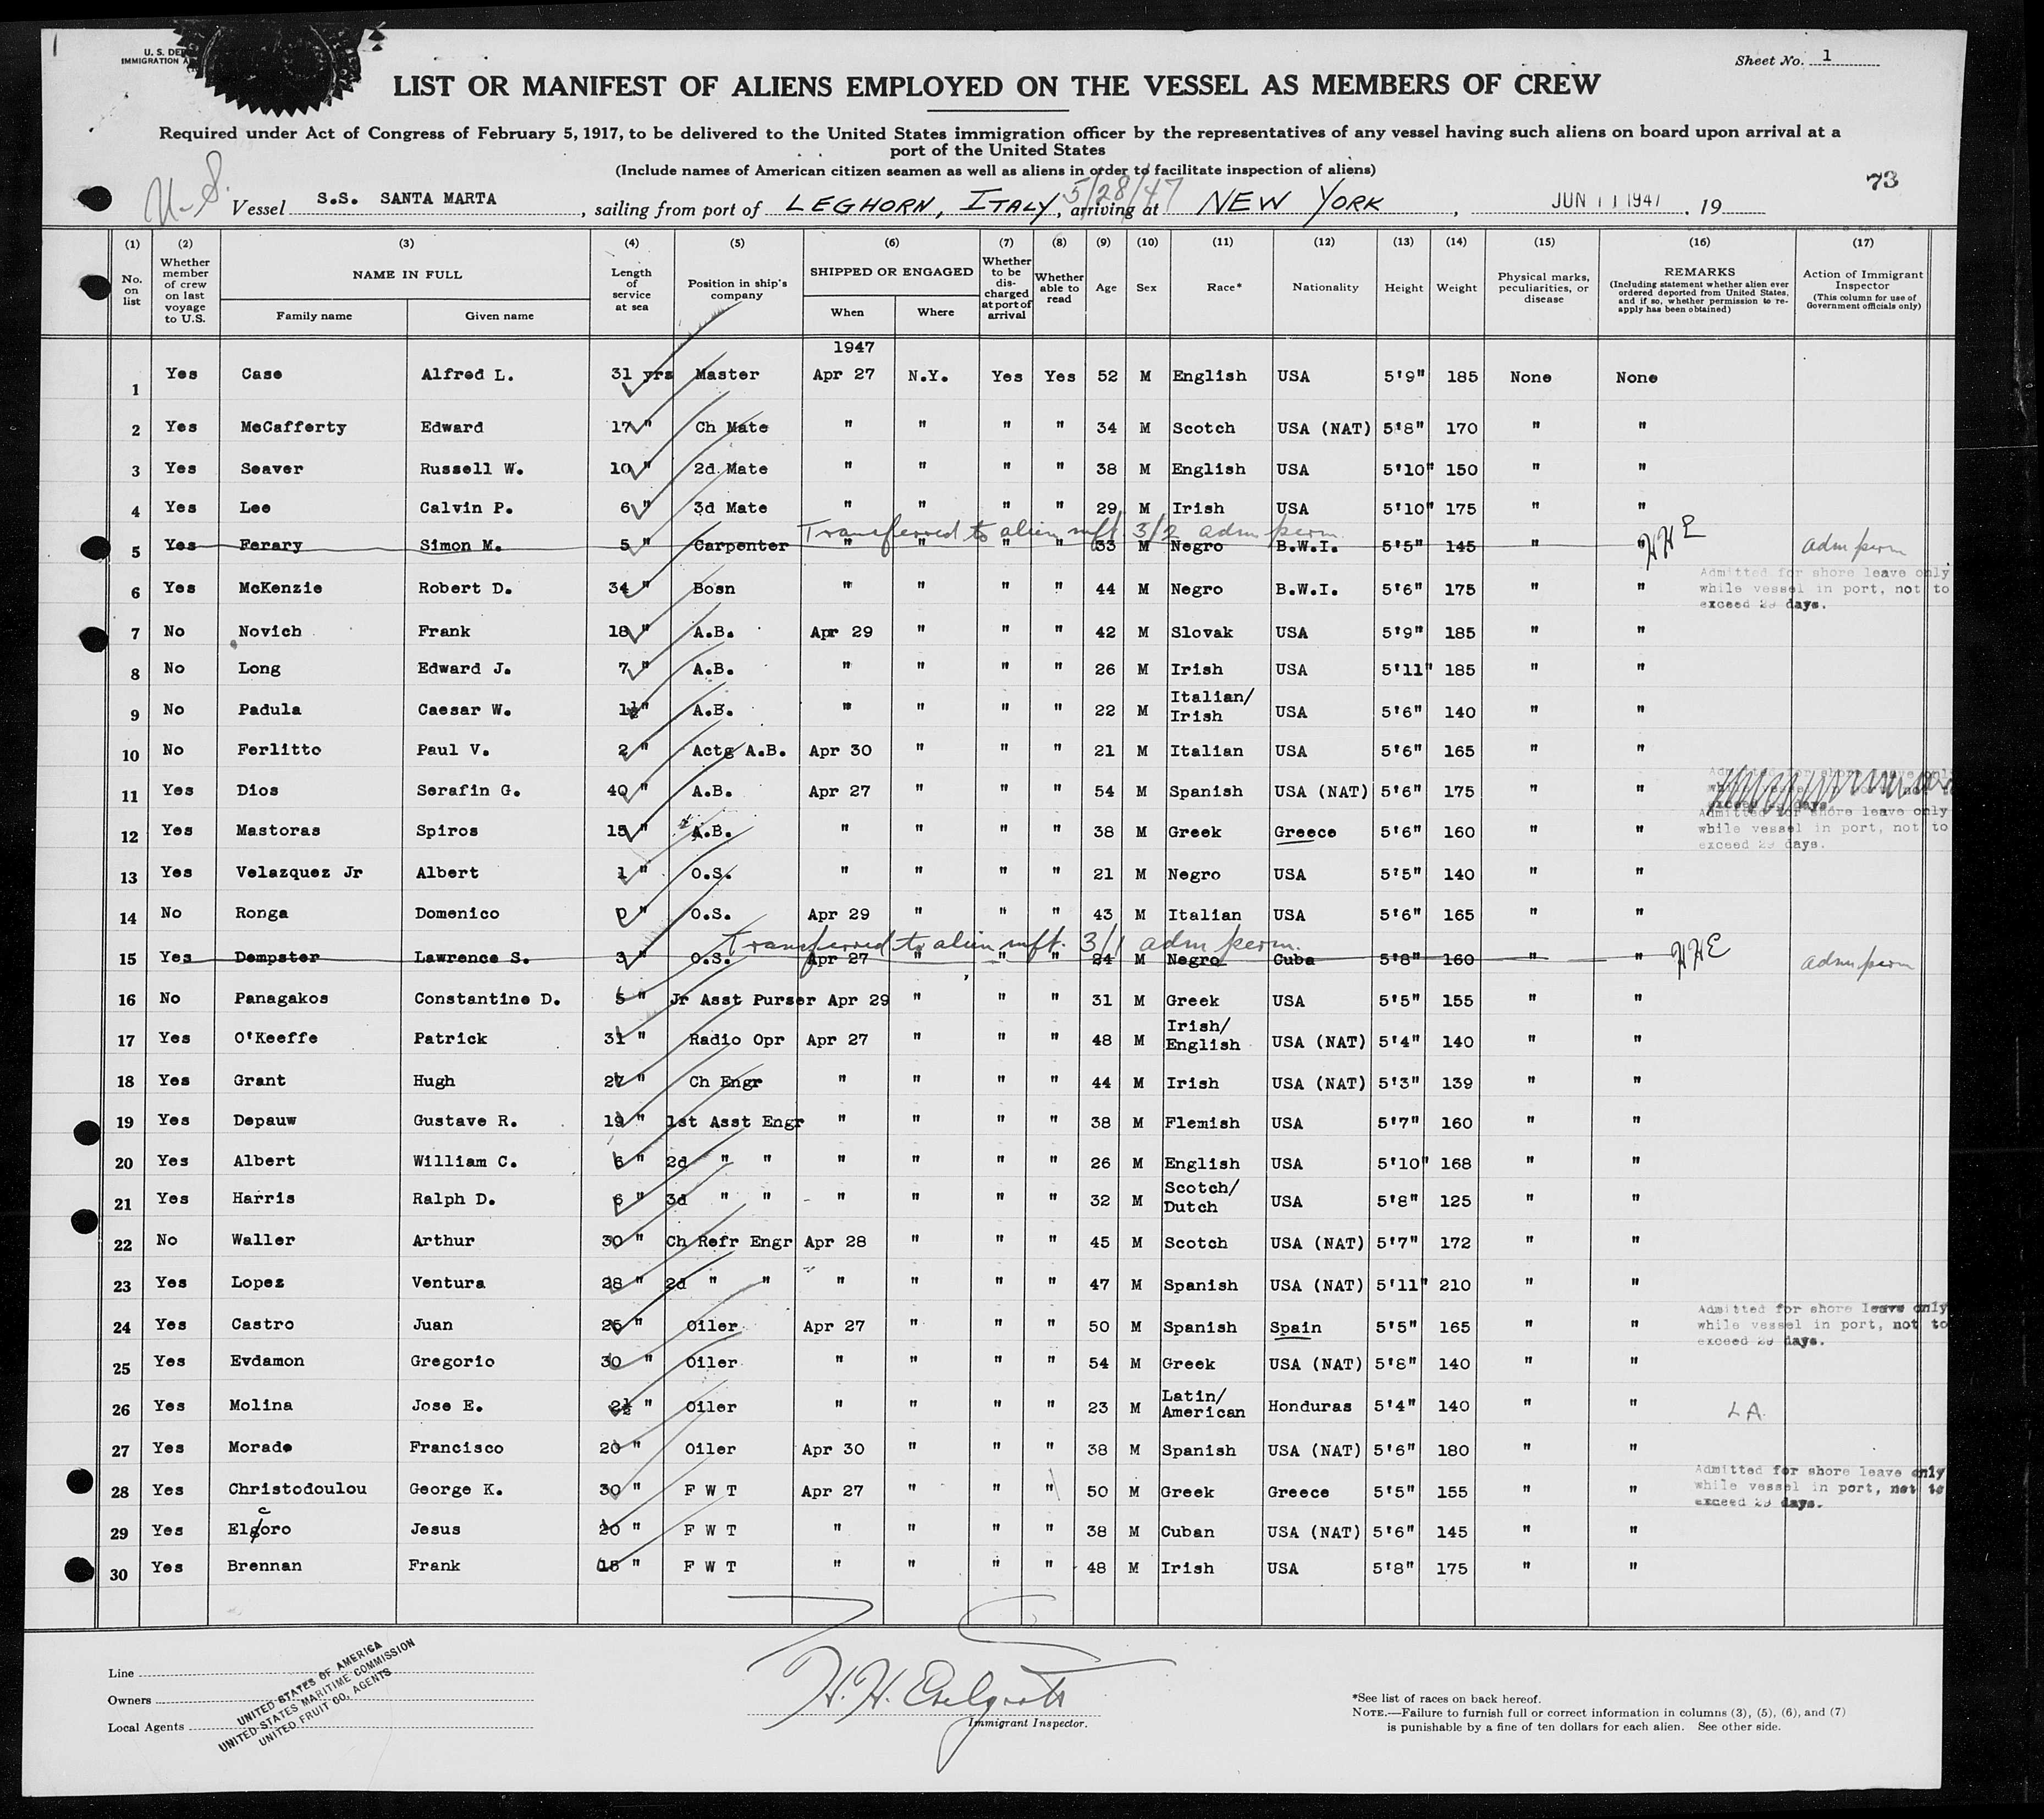 U. S. DE
IMMIGRATION A
Sheet No. 1
LIST OR MANIFEST OF ALIENS EMPLOYED ON THE VESSEL AS MEMBERS OF CREW
Required under Act of Congress of February 5, 1917, to be delivered to the United States immigration officer by the representatives of any vessel having such aliens on board upon arrival at a
port of the United States
(Include names of American citizen seamen as well as aliens in order to facilitate inspection of aliens)
73
U.S. Vessel S.S. SANTA MARTA, sailing from port of LEGHORN, ITALY, 5/28/47 arriving at NEW YORK, JUN 11 1947, 19
(1) (2) (3) (4) (5) (6) (7) (8) (9) (10) (11) (12) (13) (14) (15) (16) (17)
No. on list
Whether member of crew on last voyage to U.S.
NAME IN FULL
Family name
Given name
Length of service at sea
Position in ship's company
SHIPPED OR ENGAGED
When
Where
Whether to be discharged at port of arrival
Whether able to read
Age
Sex
Race*
Nationality
Height
Weight
Physical marks, peculiarities, or disease
REMARKS
(Including statement whether alien ever ordered deported from United States, and if so, whether permission to reapply has been obtained)
Action of Immigrant Inspector
(This column for use of Government officials only)
1947
1 Yes Case Alfred L. 31 yrs Master Apr 27 N.Y. Yes Yes 52 M English USA 5'9" 185 None None
2 Yes McCafferty Edward 17 " Ch Mate " " " " 34 M Scotch USA (NAT) 5'8" 170 " "
3 Yes Seaver Russell W. 10 " 2d Mate " " " " 38 M English USA 5'10" 150 " "
4 Yes Lee Calvin P. 6 " 3d Mate " " " " 29 M Irish USA 5'10" 175 " "
Transferred to alien mft. 3/2 adm perm
5 Yes Ferary Simon M. 5 " Carpenter " " " " 33 M Negro B.W.I. 5'5" 145 " " HHE adm perm
6 Yes McKenzie Robert D. 34 " Bosn " " " " 44 M Negro B.W.I. 5'6" 175 " " Admitted for shore leave only while vessel in port, not to exceed 29 days.
7 No Novich Frank 18 " A.B. Apr 29 " " " 42 M Slovak USA 5'9" 185 " "
8 No Long Edward J. 7 " A.B. " " " " 26 M Irish USA 5'11" 185 " "
9 No Padula Caesar W. 1½" A.B. " " " " 22 M Italian/Irish USA 5'6" 140 " "
10 No Ferlitto Paul V. 2 " Actg A.B. Apr 30 " " " 21 M Italian USA 5'6" 165 " "
11 Yes Dios Serafin G. 40 " A.B. Apr 27 " " " 54 M Spanish USA (NAT) 5'6" 175 " " Admitted for shore leave only while vessel in port, not to exceed 29 days.
12 Yes Mastoras Spiros 15 " A.B. " " " " 38 M Greek Greece 5'6" 160 " " Admitted for shore leave only while vessel in port, not to exceed 29 days.
13 Yes Velazquez Jr Albert 1 " O.S. " " " " 21 M Negro USA 5'5" 140 " "
14 No Ronga Domenico 0 " O.S. Apr 29 " " " 43 M Italian USA 5'6" 165 " "
Transferred to alien mft. 3/1 adm perm.
15 Yes Dempster Lawrence S. 3 " O.S. Apr 27 " " " 24 M Negro Cuba 5'8" 160 " " HHE adm perm
16 No Panagakos Constantine D. 5 " Jr Asst Purser Apr 29 " " " 31 M Greek USA 5'5" 155 " "
17 Yes O'Keeffe Patrick 31 " Radio Opr Apr 27 " " " 48 M Irish/English USA (NAT) 5'4" 140 " "
18 Yes Grant Hugh 27 " Ch Engr " " " " 44 M Irish USA (NAT) 5'3" 139 " "
19 Yes Depauw Gustave R. 19 " 1st Asst Engr " " " " 38 M Flemish USA 5'7" 160 " "
20 Yes Albert William C. 6 " 2d " " " " " " 26 M English USA 5'10" 168 " "
21 Yes Harris Ralph D. 6 " 3d " " " " " " 32 M Scotch/Dutch USA 5'8" 125 " "
22 No Waller Arthur 30 " Ch Refr Engr Apr 28 " " " 45 M Scotch USA (NAT) 5'7" 172 " "
23 Yes Lopez Ventura 28 " 2d " " " " " " 47 M Spanish USA (NAT) 5'11" 210 " "
24 Yes Castro Juan 26 " Oiler Apr 27 " " " 50 M Spanish Spain 5'5" 165 " " Admitted for shore leave only while vessel in port, not to exceed 29 days.
25 Yes Evdamon Gregorio 30 " Oiler " " " " 54 M Greek USA (NAT) 5'8" 140 " "
26 Yes Molina Jose E. 2½ " Oiler " " " " 23 M Latin/American Honduras 5'4" 140 " " LA
27 Yes Morade Francisco 20 " Oiler Apr 30 " " " 38 M Spanish USA (NAT) 5'6" 180 " "
28 Yes Christodoulou George K. 30 " F W T Apr 27 " " " 50 M Greek Greece 5'5" 155 " " Admitted for shore leave only while vessel in port, not to exceed 29 days.
29 Yes Elcoro Jesus 20 " F W T " " " " 38 M Cuban USA (NAT) 5'6" 145 " "
30 Yes Brennan Frank 15 " F W T " " " " 48 M Irish USA 5'8" 175 " "
Line
Owners
Local Agents
UNITED STATES OF AMERICA
UNITED STATES MARITIME COMMISSION
UNITED FRUIT CO, AGENTS
H. H.
Immigrant Inspector.
*See list of races on back hereof.
NOTE.—Failure to furnish full or correct information in columns (3), (5), (6), and (7)
is punishable by a fine of ten dollars for each alien. See other side.